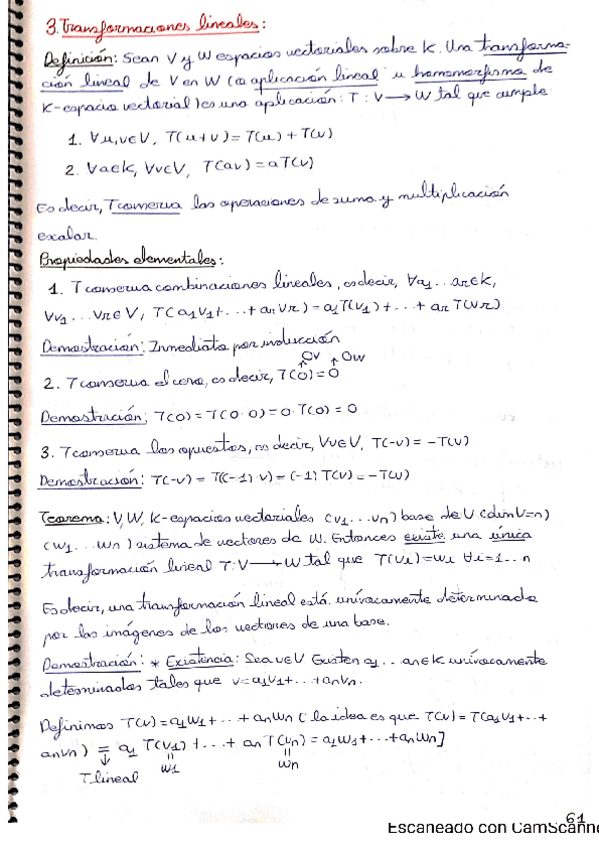 3. Transformaciones lineales:
Definición: Sean V y W espacios vectoriales sobre K. Una transforma-
ción lineal de V en W (o aplicación lineal u homomorfismo de
K-espacio vectorial) es una aplicación: T: V → W tal que cumple:
1. ∀u,v∈V, T(u+v) = T(u) + T(v)
2. ∀a∈K, ∀v∈V, T(av) = aT(v)
Es decir, T conserva las operaciones de suma y multiplicación
escalar.
Propiedades elementales:
1. T conserva combinaciones lineales, es decir, ∀a1 ... ar∈K,
∀v1 ... vr∈V, T(a1v1 + ... + arvr) = a1T(v1) + ... + ar T(vr)
Demostración: Inmediata por inducción
2. T conserva el cero, es decir, T(0) = 0
0v 0w
Demostración: T(0) = T(0·0) = 0·T(0) = 0
3. T conserva los opuestos, es decir, ∀v∈V, T(-v) = -T(v)
Demostración: T(-v) = T((-1)v) = (-1)T(v) = -T(v)
Teorema: V, W, K-espacios vectoriales (v1 ... vn) base de V (dimV=n)
(w1 ... wn) sistema de vectores de W. Entonces existe una única
transformación lineal T: V → W tal que T(vi) = wi ∀i=1...n
Es decir, una transformación lineal está unívocamente determinada
por las imágenes de los vectores de una base.
Demostración: * Existencia: Sea v∈V Existen a1 ... an∈K unívocamente
determinados tales que v = a1v1 + ... + anvn.
Definimos T(v) = a1w1 + ... + anwn [la idea es que T(v) = T(a1v1 + ... +
anvn) = a1 T(v1) + ... + an T(vn) = a1w1 + ... + anwn]
T lineal w1 wn
61
Escaneado con CamScanne